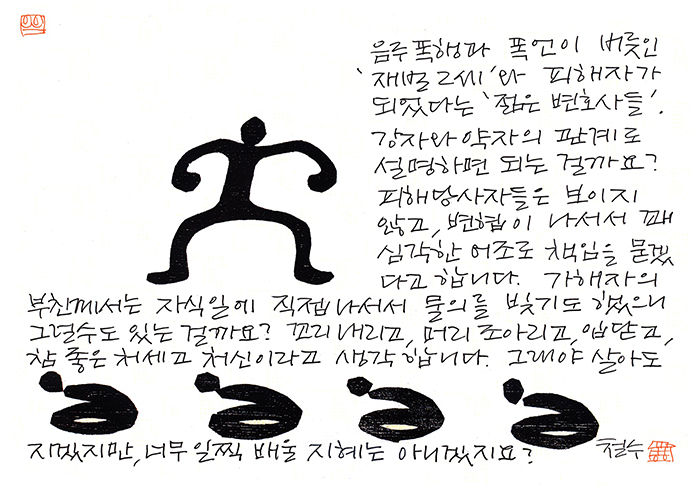 음주폭행과 폭언이 버릇인
'재벌 2세'와 피해자가
되었다는 '젊은 변호사들'.
강자와 약자의 관계로
설명하면 되는 걸까요?
피해당사자들은 보이지
않고, 변협이 나서서 꽤
심각한 어조로 책임을 묻겠
다고 합니다. 가해자의
부친께서는 자식일에 직접나서서 물의를 빚기도 했으니
그럴수도 있는 걸까요? 꼬리내리고, 머리조아리고, 입닫고,
참 좋은 처세고 처신이라고 생각합니다. 그래야 살아도
지겠지만, 너무 일찍 배울 지혜는 아니겠지요? 철수